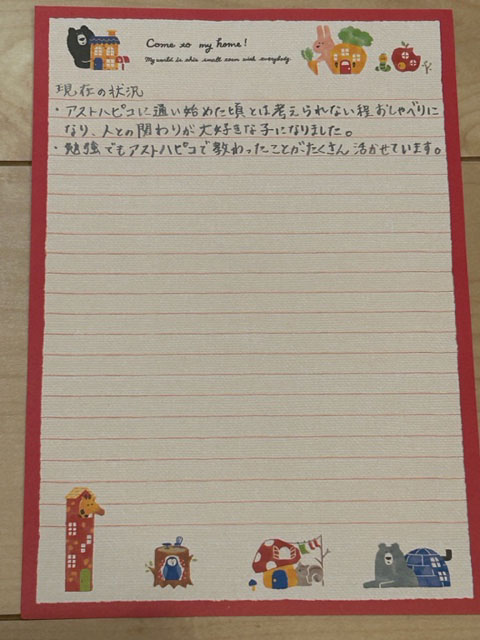 Come to my home!
My world is this small room with everybody.
現在の状況
・アストハピコに通い始めた頃とは考えられない程おしゃべりに
なり、人との関わりが大好きな子になりました。
・勉強でもアストハピコで教わったことがたくさん活かせています。